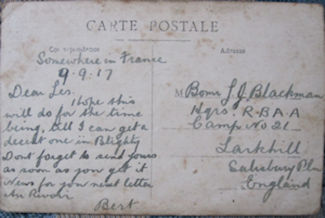 CARTE POSTALE
Correspondance
Adresse
Somewhere in France
9-9-17
Dear Les.
I hope this
will do for the time
being, till I can get a
decent one in Blighty
Dont forget to send yours
as soon as you get it
News for you next letter
Au Revoir
Bert
M Bomr L J Blackman
Hqrs. R-B-A-A
Camp No 21
Larkhill
Salisbury Pln
England